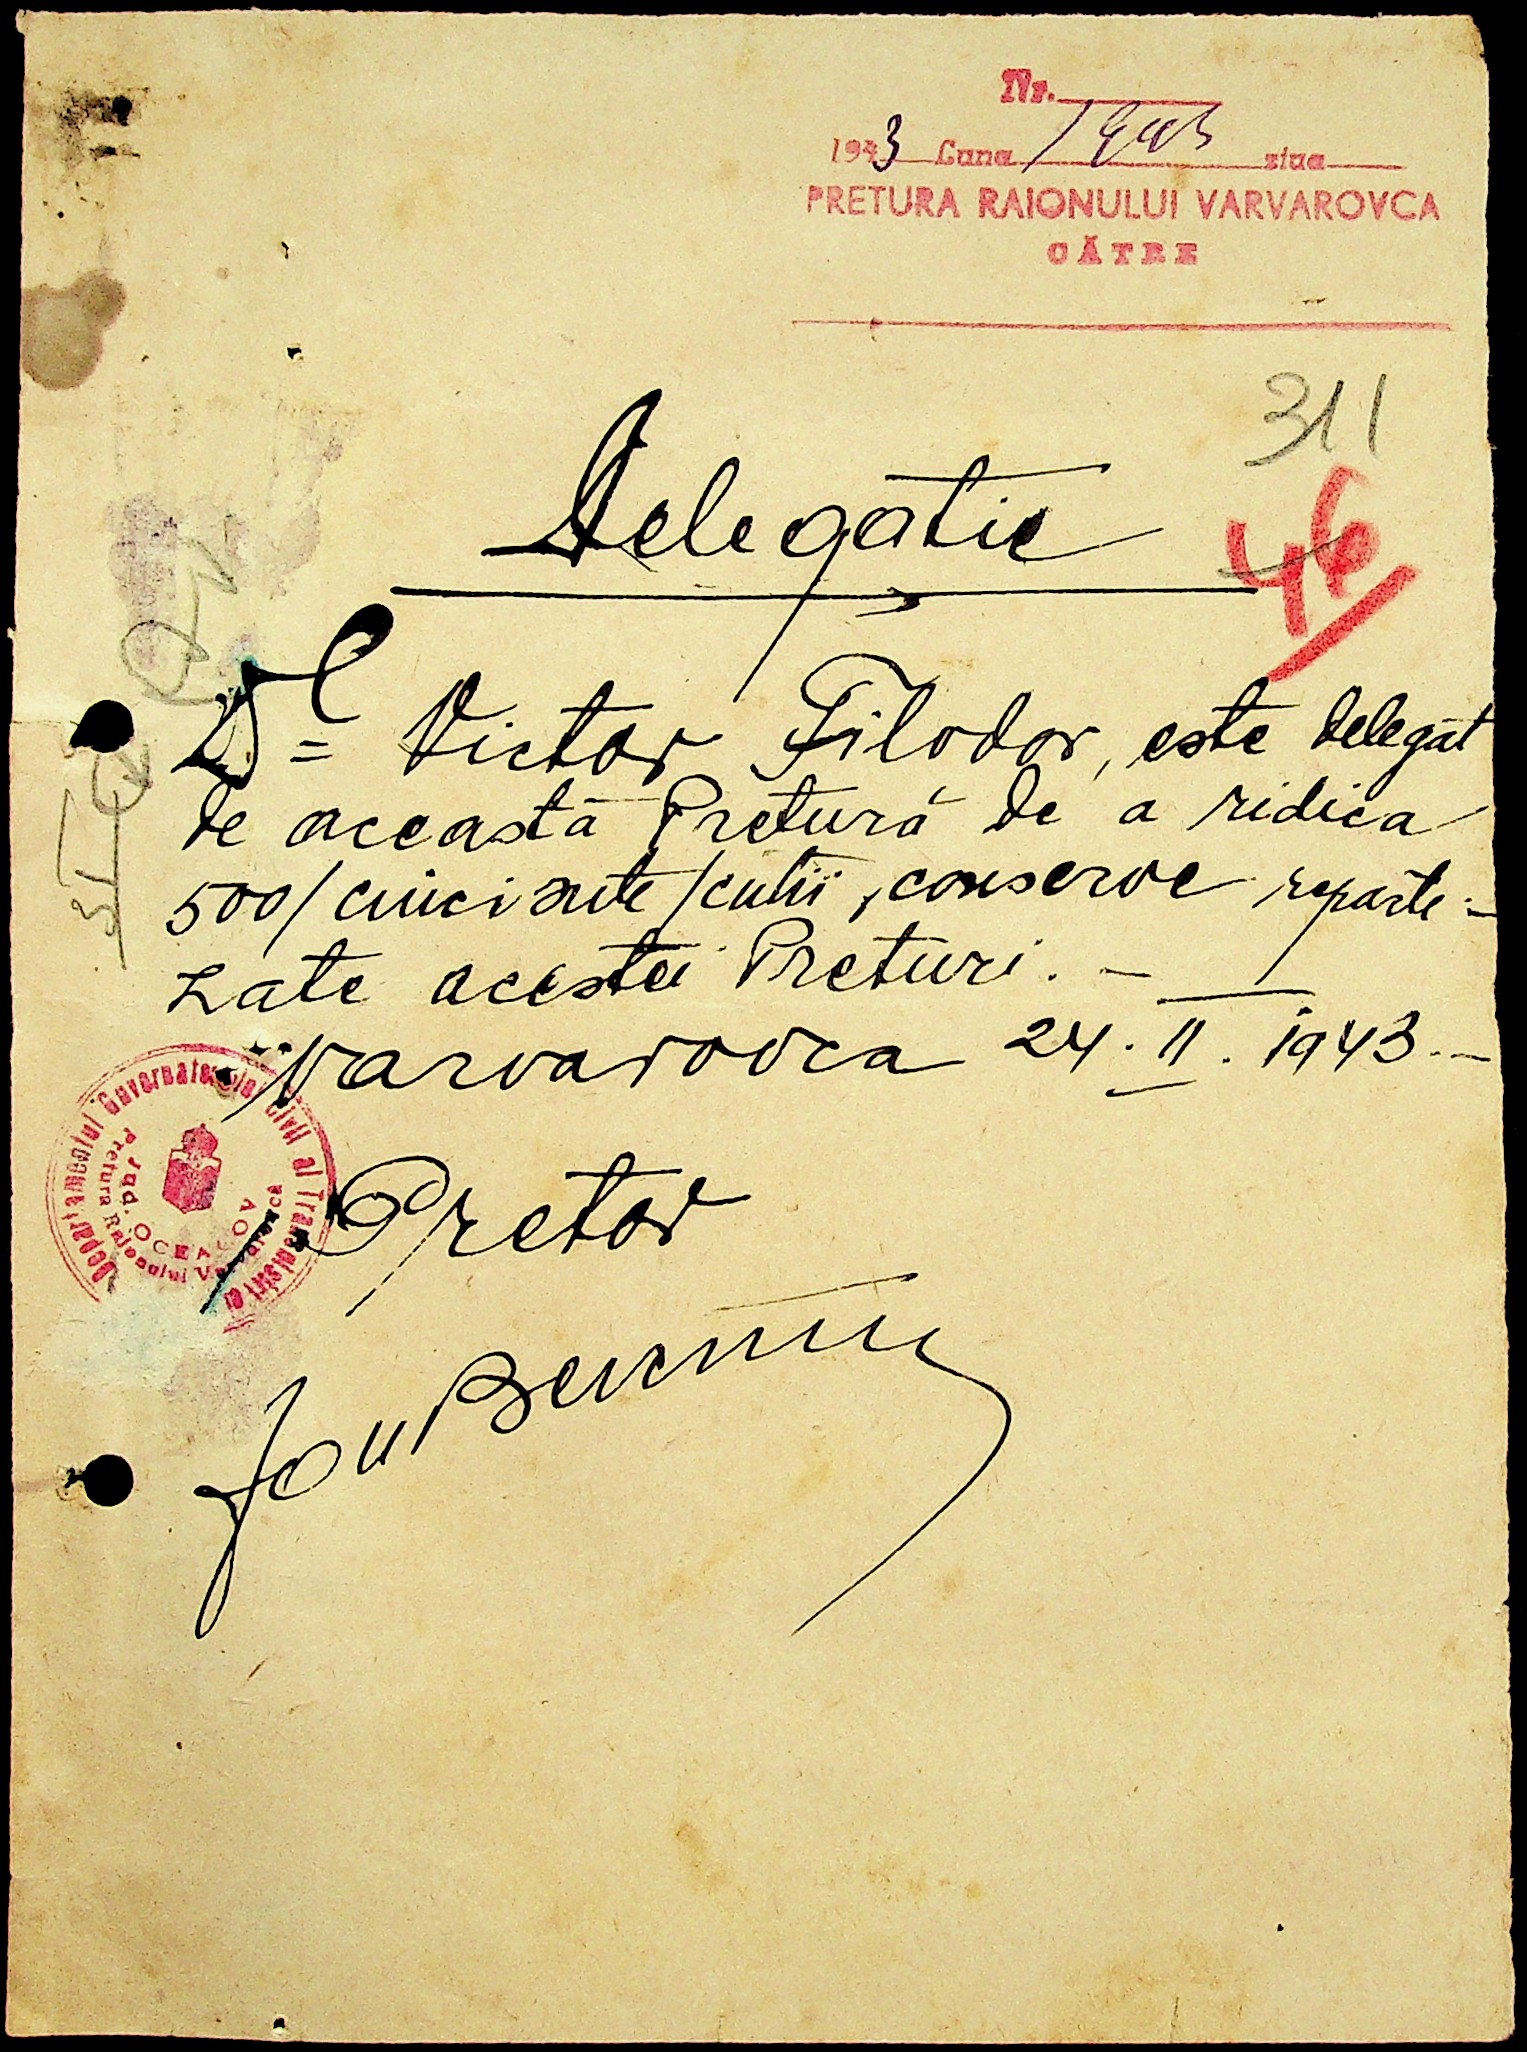 Nr.
1943 Luna 1943 ziua
PRETURA RAIONULUI VARVAROVCA
CĂTRE
311
46
Delegatie
Dl Victor Filodor, este delegat
de această Pretură de a ridica
500/cinci sute/cutii, conserve reparte-
zate acestei Preturi. -
Varvarovca 24. II. 1943. -
Departamentul Guvernatorului Civil al Transnistriei
Jud. OCEACOV
Pretura Raionului Varvarovca
Pretor